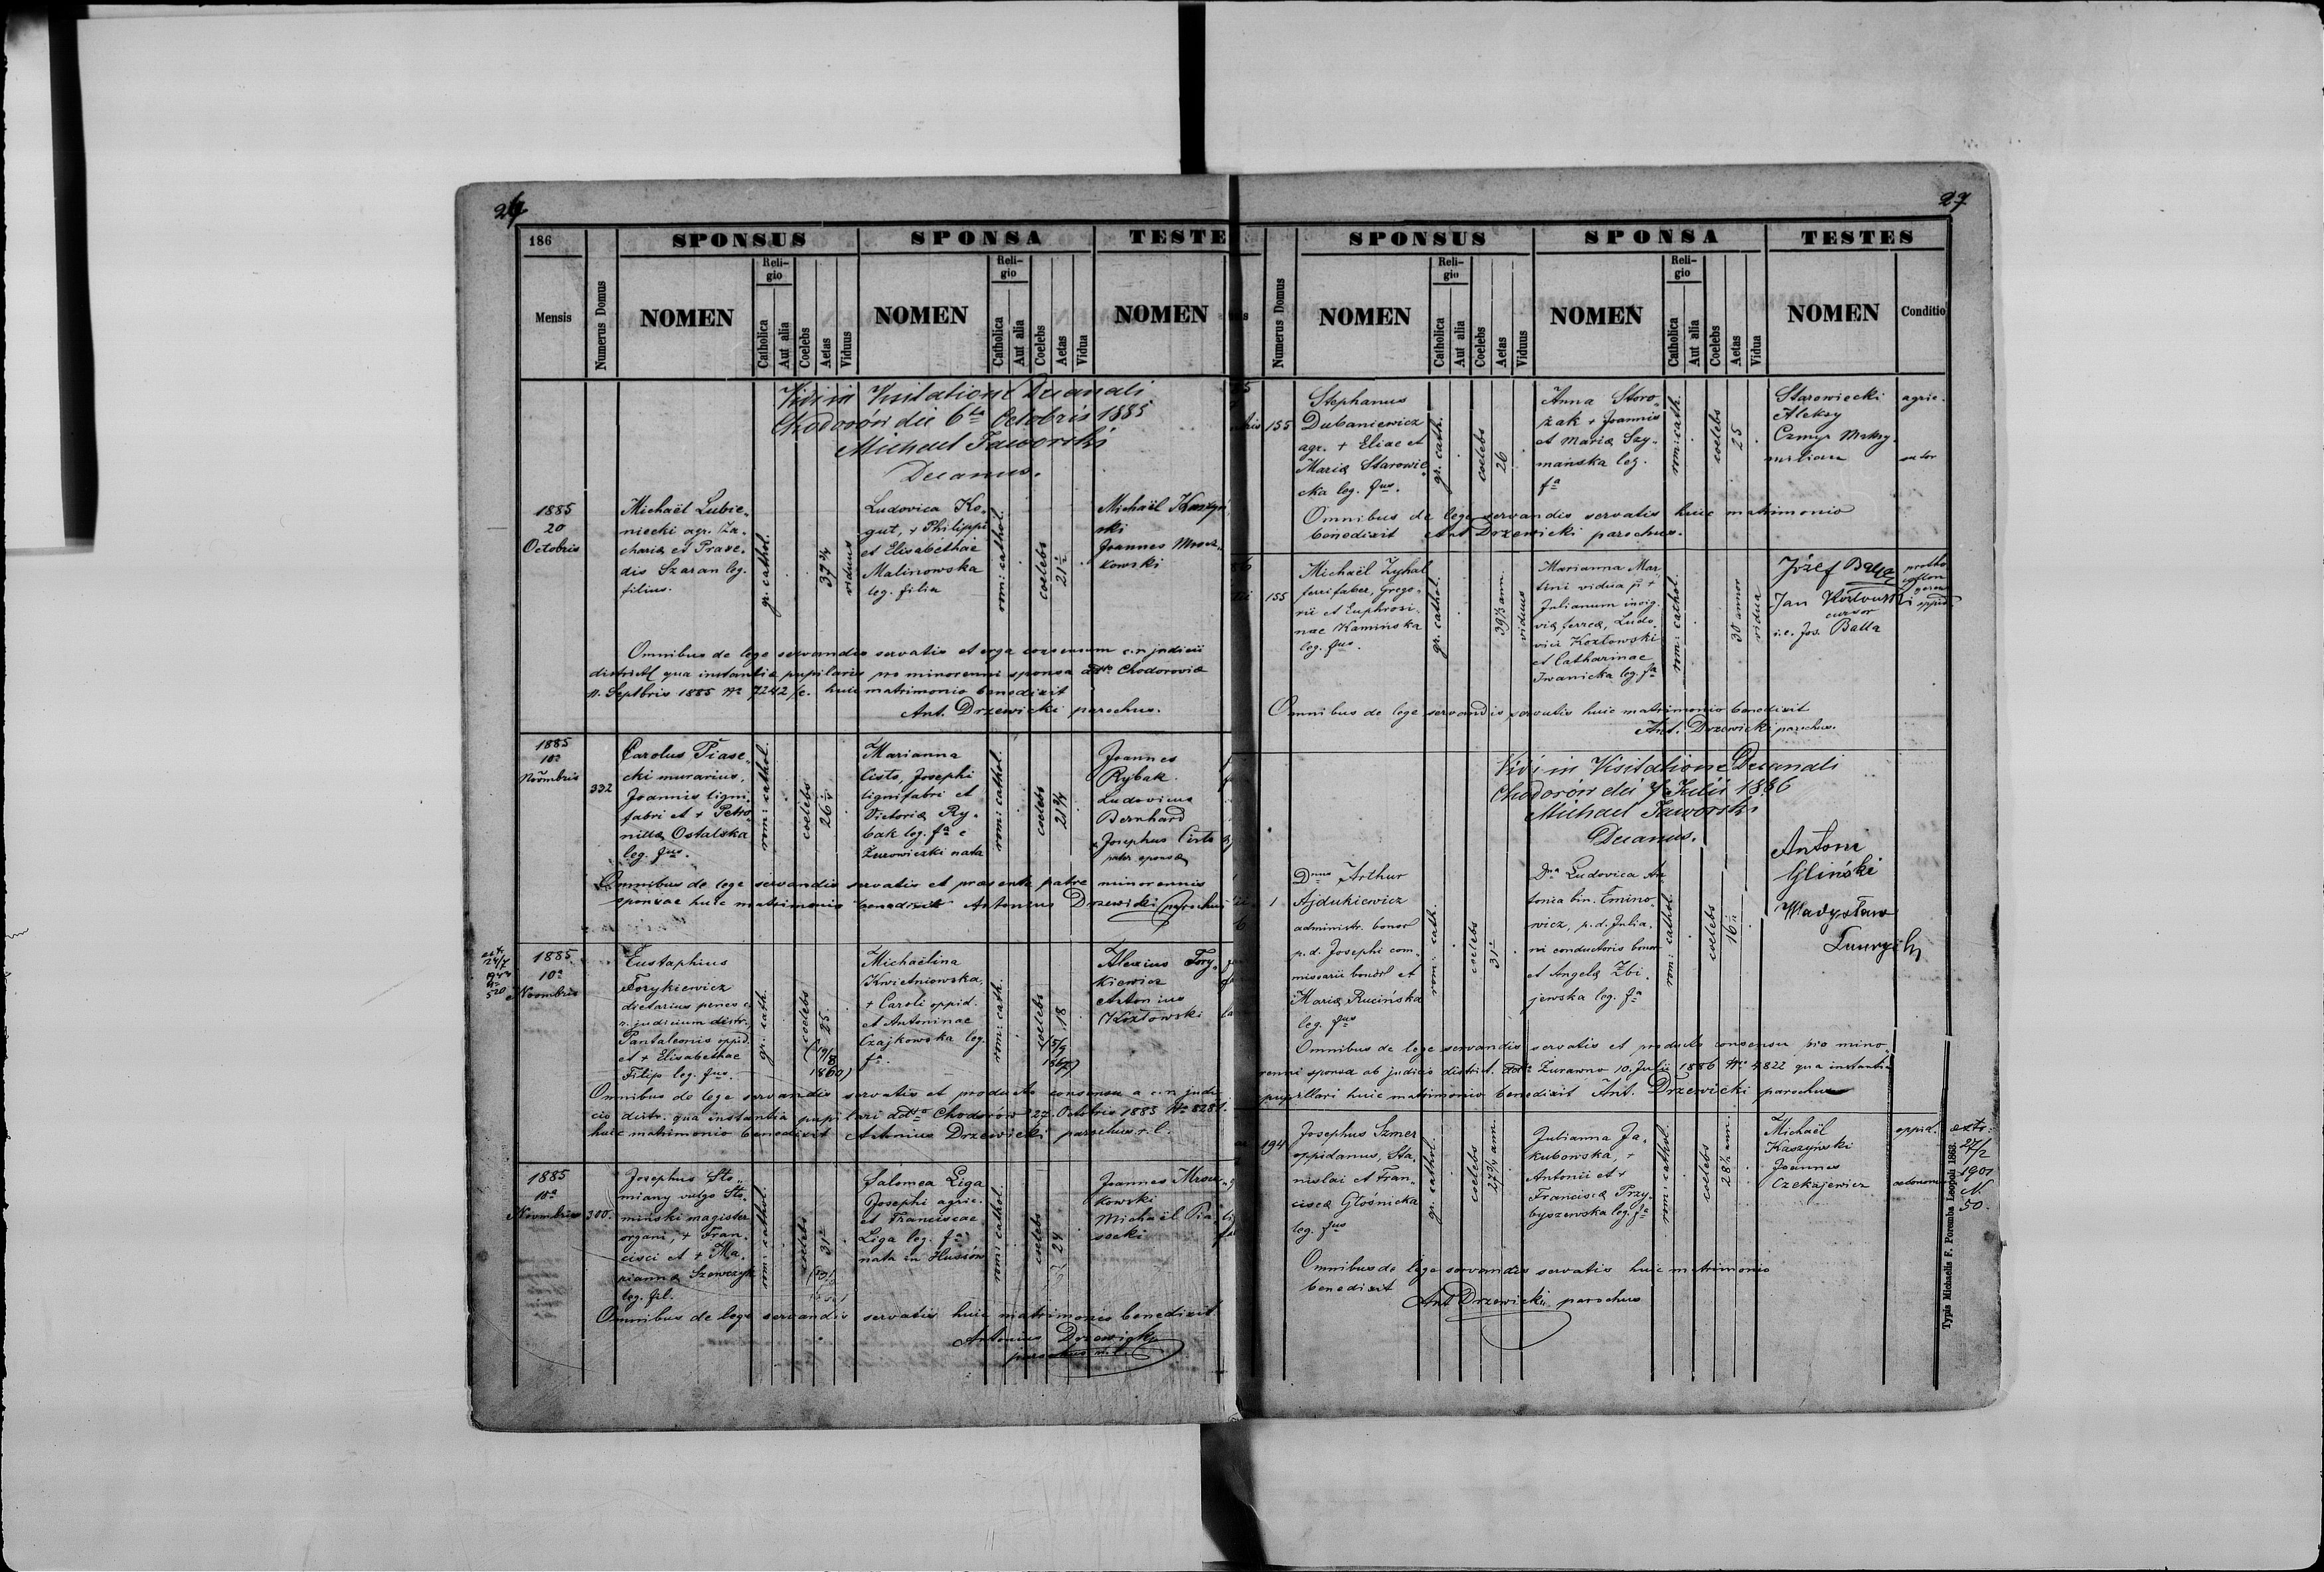 186
SPONSUS
SPONSA
TESTE
Mensis
Numerus Domus
NOMEN
Religio
Catholica
Aut alia
Coelebs
Aetas
Viduus
NOMEN
Religio
Catholica
Aut alia
Coelebs
Aetas
Vidua
NOMEN
Vidi in Visitatione Decanali
Chodorów die 6ta Octobris 1885
Michael Jaworski
Decanus.
1885
20
Octobris
Michaël Lubie„
niecki agr. Za„
chariæ et Praxe„
dis Szaran leg.
filius.
gr. cathol.
39 3/4
viduus
Ludovica Ko„
gut, + Philippi
et Elisabethae
Malinowska
leg. filia
rom: cathol.
coelebs
21 1/2
Michaël Kaszyń
ski
Joannes Mrocz„
kowski
Omnibus de lege servandis servatis et erga consensum c. r. judicii
district qua instantiæ pupilaris pro minorenni sponsa ddto Chodoroviæ
11. Septbris 1885 No 7242/c. huic matrimonio benedixit
Ant. Drzewicki parochus.
1885
10a
Novmbris
332
Carolus Piase„
cki murarius,
Joannis ligni„
fabri et + Petro„
nillæ Ostalska
leg. fius.
rom: cathol.
coelebs
26
Marianna
Cisto, Josephi
lignifabri et
Victoriæ Ry„
bak leg. fa e
Żurowieczki nata
rom: cathol.
coelebs
21 3/4
Joannes
Rybak
Ludovicus
Bernhard
Josephus Cisto
pater sponsæ
Omnibus de lege servandis servatis et præsente patre minorennis
sponsae huic matrimonio benedixit Antonius Drzewicki parochus
1885
10a
Novmbris
Eustaphius
Torykiewicz
dietarius penes c.
r. judicium distr.,
Pantaleonis oppid.
et + Elisabethae
Filip leg. fius.
gr: cath.
coelebs
25
(19/8
1860)
Michaëlina
Kwietniowska,
+ Caroli oppid.
et Antoninae
Czajkowska leg.
fa.
rom: cath.
coelebs
18
(5/9
1867)
Alexius Tory„
kiewicz
Antonius
Kozłowski
Omnibus de lege servandis servatis et producto consensu a c. r. judi
cio distr. qua instantia pupilari ddto Chodorów 27. Octobris 1885 No 8281.
huic matrimonio benedixit Antonius Drzewicki parochus r. l.
1885
Novmbris
300.
Josephus Sto„
miany vulgo Sto„
miński magister
organi, + Fran„
cisci et + Ma„
riannæ Szewczyk
leg. fil.
rom: cathol.
coelebs
31
Salomea Liga
Josephi agric.
et Franciscae
Liga leg. fa
nata in Husiów
rom: cathol.
coelebs
24
Joannes Mrocz„
kowski
Michaël Pia„
secki
Omnibus de lege servandis servatis huic matrimonio benedixit
Antonius Drzewicki
parochus
27
SPONSUS
SPONSA
TESTES
Numerus Domus
NOMEN
Religio
Catholica
Aut alia
Coelebs
Aetas
Viduus
NOMEN
Religio
Catholica
Aut alia
Coelebs
Aetas
Vidua
NOMEN
Conditio
155
Stephanus
Dubaniewicz
agr. + Eliae et
Mariæ Starowie„
cka leg. fius.
gr. cath.
coelebs
26
Anna Storo„
żak + Joannis
et Mariæ Szy„
mańska leg.
fa
rom: cath.
coelebs
25
Starowiecki
Aleksy
agric.
sutor
Omnibus de lege servandis servatis huic matrimonio
benedixit Ant Drzewicki parochus.
155
Michaël Zyhal
ferrifaber, Grego„
rii et Euphrosi„
nae Kamińska
leg. fius.
gr. cathol.
39 1/3 ann.
viduus
Marianna Mar„
tini vidua p. +
Julianum invig.
viæ ferreæ, Ludo„
vici Kozłowski
et Catharinae
Iwanicka leg. fa
rom: cathol.
30 annor
vidua
Józef Balla
Jan Kozłowski
cursor
i.e. Jos. Balla
Omnibus de lege servandis servatis huic matrimonio benedixit
Ant. Drzewicki parochus.
Vidi in Visitatione Decanali
Chodorów die Julii 1886
Michael Jaworski
Decanus.
1
Dnus Arthur
Ajdukiewicz
administr. bonor
p. d. Josephi com„
missarii bonor et
Mariæ Rucińska
leg. fius
rom: cath.
coelebs
31
Dna Ludovica An„
tonia bin. Emino„
wicz, p. d. Julia„
ni conductoris bonor
et Angelæ Zbi„
jewska leg. fa
rom: cathol.
coelebs
16
Antoni
Gliński
Władysław
Omnibus de lege servandis servatis et producto consensu pro mino„
renni sponsa ab judicio district. ddto Żurawno 10. Julii 1886 No 4822 qua instantia
pupillari huic matrimonio benedixit Ant. Drzewicki parochus
194
Josephus Szmer
oppidanus, Sta„
nislai et Fran„
ciscæ Głośnicka
leg. fius
gr. cathol.
coelebs
27 3/4 ann.
Julianna Ja„
kubowska, +
Antonii et +
Franciscæ Przy„
byszewska leg. fa
rom: cathol.
coelebs
28 1/2 ann.
Michaël
Kaszyński
Joannes
Czekajewicz
oppid.
oeconom
extr:
27/2
1901
N.
50.
Omnibus de lege servandis servatis huic matrimonio
benedixit
Ant Drzewicki parochus
Typis Michaelis F. Poremba Leopoli 1863.